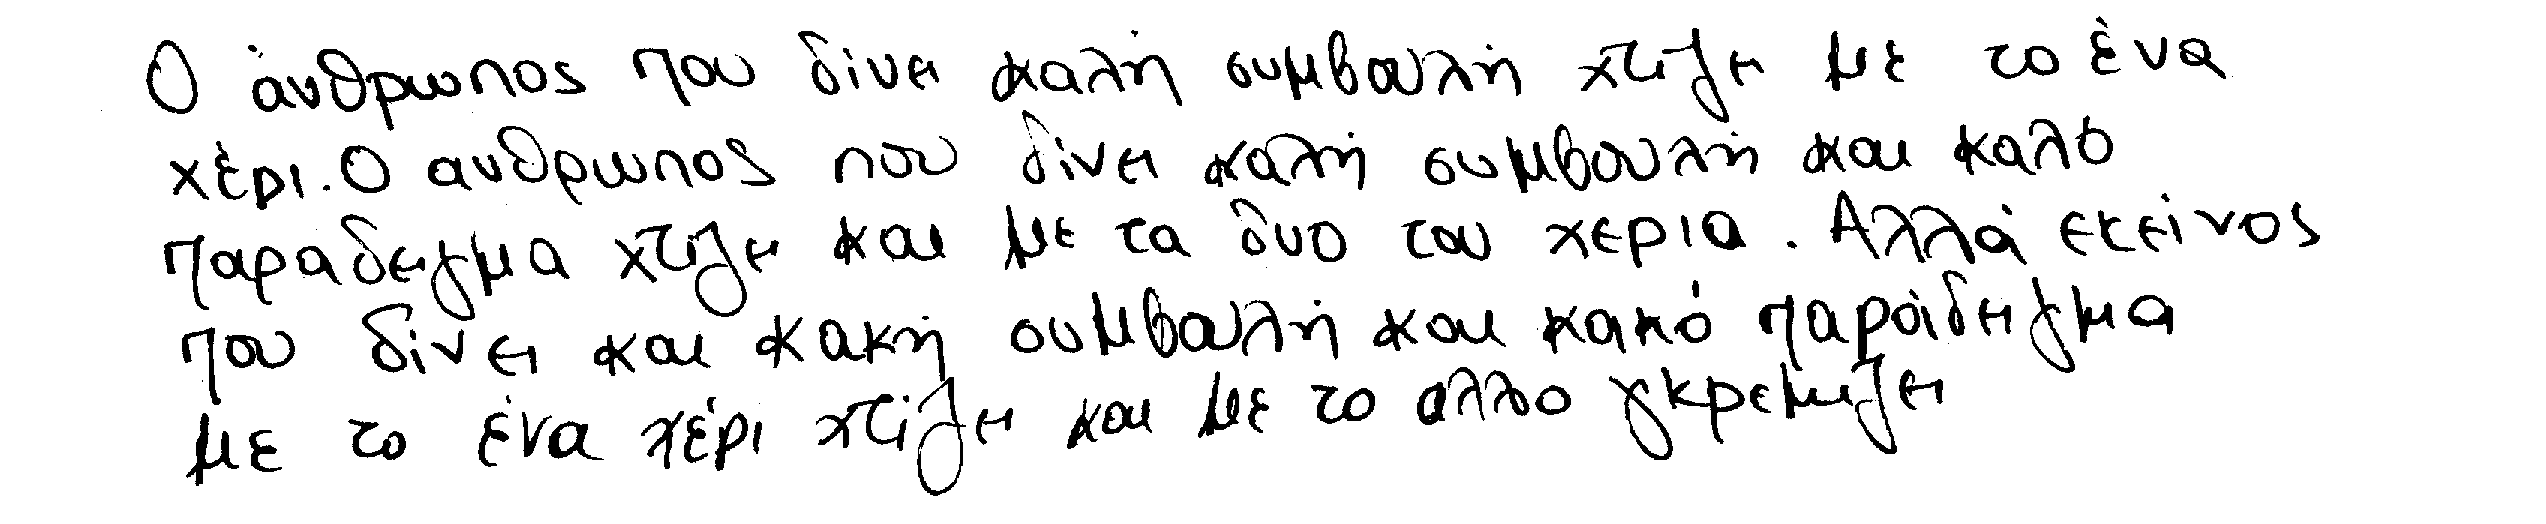 Ο άνθρωπος που δίνει καλή συμβουλή χτίζει με το ένα
χέρι. Ο ανθρωπος που δίνει καλή συμβουλή και καλό
παραδειγμα χτίζει και με τα δυο του χερια. Αλλά εκείνος
που δίνει και κακή συμβουλή και κακό παράδειγμα
με το ένα χέρι χτίζει και με το αλλο γκρεμιζει